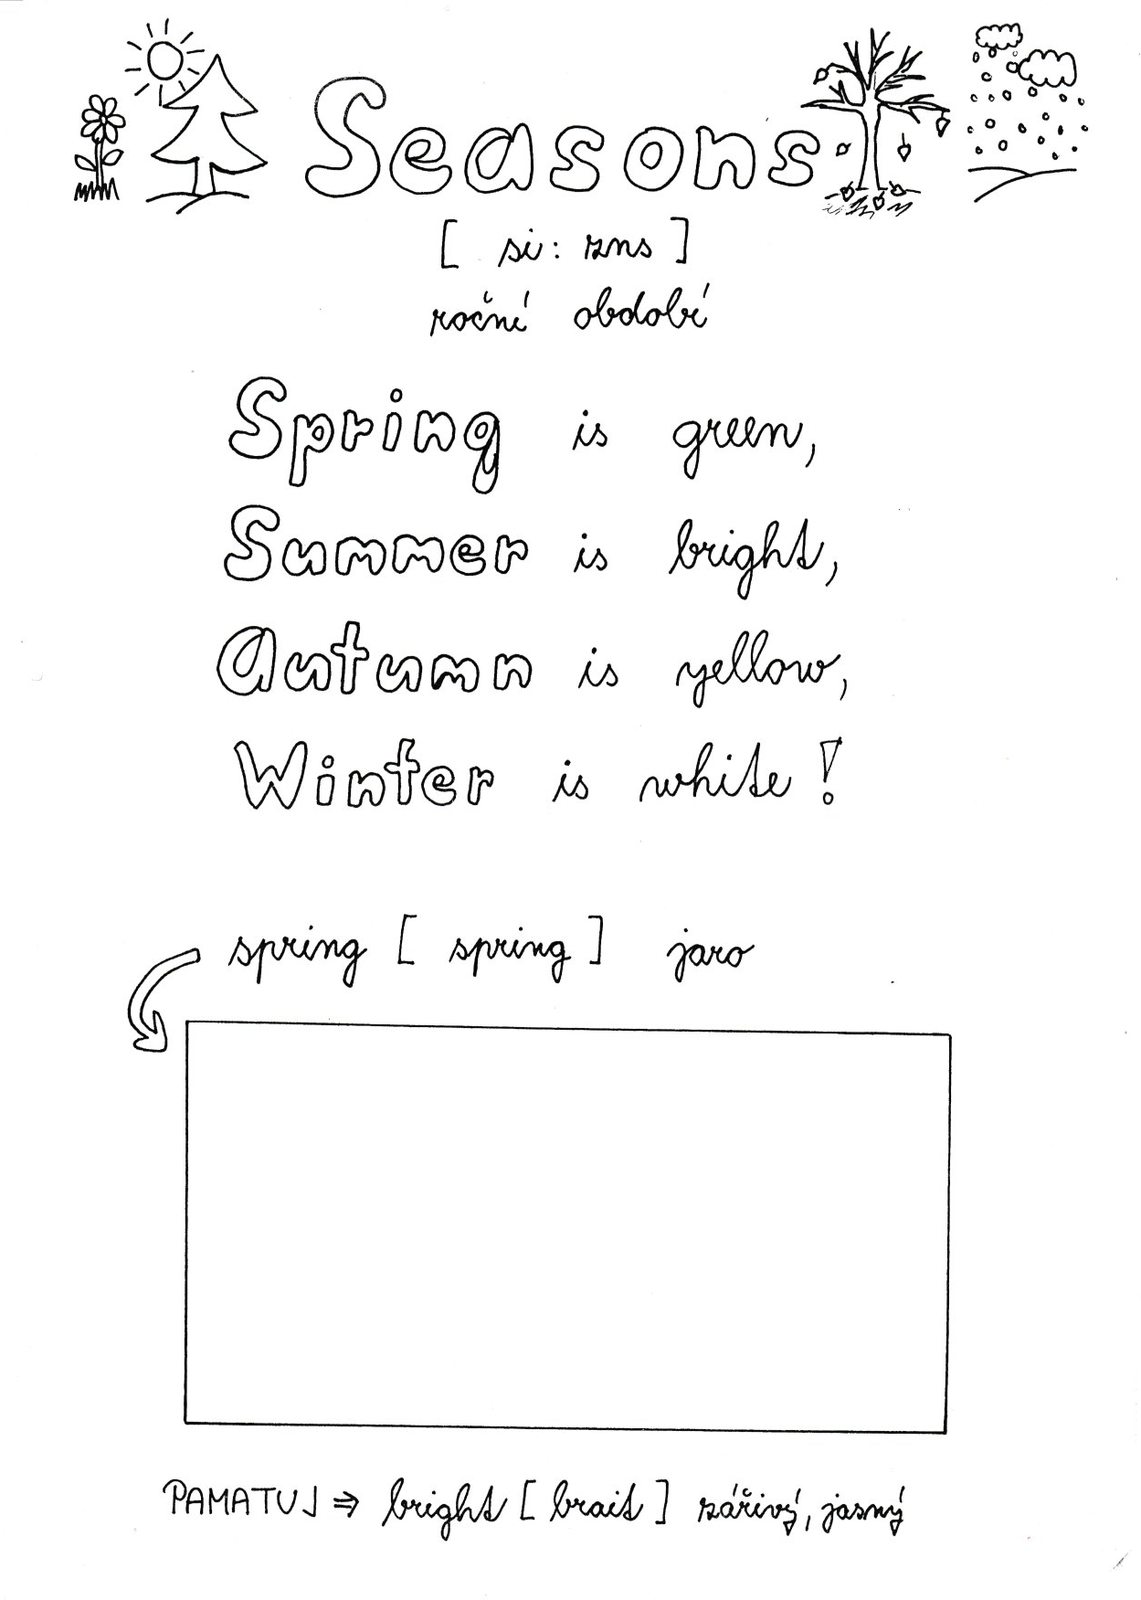 Seasons
[ si: zns ]
roční období
Spring is green,
Summer is bright,
Autumn is yellow,
Winter is white!
spring [ spring ] jaro
PAMATUJ ⇒ bright [ brait ] zářivý, jasný